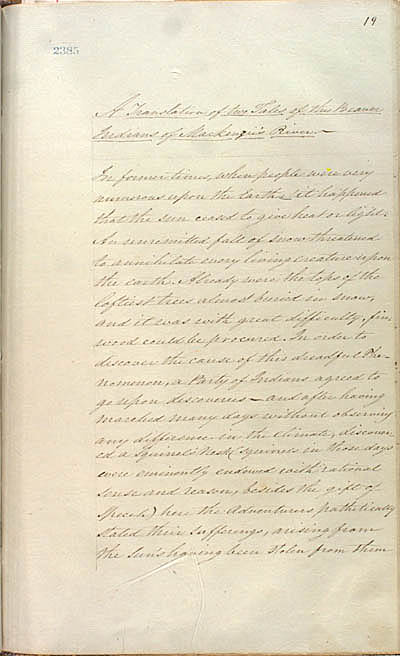 19
2385
A Translation of two Tales of the Beaver
Indians of Mackenzie's River.—
In former times, when people were very
numerous upon the Earth, it happened
that the sun ceased to give heat or light.
An unremitted fall of snow threatened
to annihilate every living creature upon
the earth. Already were the tops of the
loftiest trees almost buried in snow,
and it was with great difficulty, fire
wood could be procured. In order to
discover the cause of this dreadful Phe-
nomenon, a Party of Indians agreed to
go upon discoveries — and after having
marched many days without observing
any difference in the climate, discover-
ed a squirrel's Nest (squirrels in those days
were eminently endowed with rational
sense and reason, besides the gift of
speech) here the Adventurers pathetically
stated their sufferings, arising from
the sun's having been stolen from them